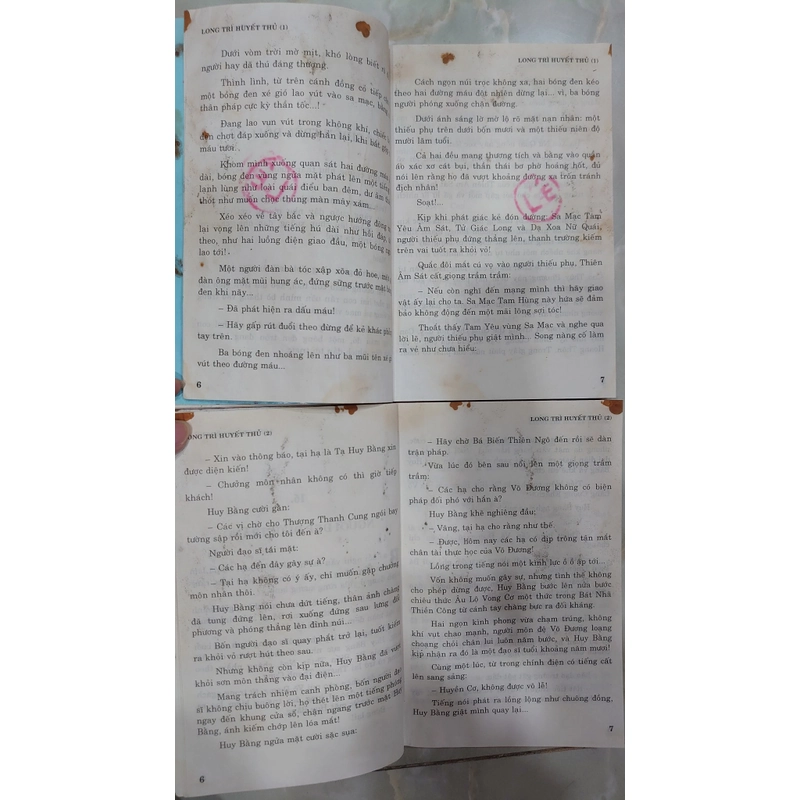 LONG TRÌ HUYẾT THỦ (1)
Dưới vòm trời mờ mịt, khó lòng biết vị
người hay dã thú đáng thương.
Thình lình, từ trên cánh đồng cỏ tiếp
một bóng đen xé gió lao vút vào sa mạc, bằng
thân pháp cực kỳ thần tốc...!
Đang lao vun vút trong không khí, chiếc
đen chợt đáp xuống và dừng hẳn lại, khi bắt gặp
máu tươi..
Khom mình xuống quan sát hai đường máu
dài, bóng đen từng ngửa mặt phát lên một tiếng
lạnh lùng như loài quái điểu ban đêm, dư âm
thót như muốn chọc thủng màn mây xám...
Xéo xéo về tây bắc và ngược hướng đông
lại vọng lên những tiếng hú dài như hồi đáp,
theo, như hai luồng điện giao đầu, một bóng
lao tới!
Một người đàn bà tóc xắp xõa đỏ hoe, một
đàn ông mặt mũi hung ác, đứng sừng trước mặt
đen khi nãy...
– Đã phát hiện ra dấu máu!
– Hãy gấp rút đuổi theo đừng để kẻ khác
tay trên.
Ba bóng đen nhoáng lên như ba mũi tên xẻ
vút theo đường máu...
6
LONG TRÌ HUYẾT THỦ (1)
Cách ngọn núi trọc không xa, hai bóng đen kéo
theo hai đường máu đột nhiên dừng lại... vì, ba bóng
người phóng xuống chặn đường.
Dưới ánh sáng lờ mờ lộ rõ mặt nạn nhân: một
thiếu phụ trên dưới bốn mươi và một thiếu niên độ
mười lăm tuổi.
Cả hai đều mang thương tích và bằng vào quần
áo xác xơ cát bụi, thần thái bơ phờ hoảng hốt, đủ
nói lên rằng họ đã vượt khoảng đường xa trốn tránh
địch nhân!
Soạt!...
Kịp khi phát giác kẻ đón đường: Sa Mạc Tam
Yêu Âm Sát, Tứ Giác Long và Dạ Xoa Nữ Quái,
người thiếu phụ đứng thẳng lên, thanh trường kiếm
trên vai tuốt ra khỏi vỏ!
Quắc đôi mắt cú vọ vào người thiếu phụ, Thiên
Âm Sát cất giọng trầm trầm:
– Nếu còn nghĩ đến mạng mình thì hãy giao
vật ấy lại cho ta. Sa Mạc Tam Hùng này hứa sẽ đảm
bảo không động đến một mãi lông sợi tóc!
Thoắt thấy Tam Yêu vùng Sa Mạc và nghe qua
lời lẽ, người thiếu phụ giật mình... Song nàng cố làm
ra vẻ như chưa hiểu:
7
LONG TRÌ HUYẾT THỦ (2)
– Xin vào thông báo, tại hạ là Tạ Huy Bằng xin
được diện kiến!
– Chưởng môn nhân không có thì giờ tiếp
khách!
Huy Bằng cười gằn:
– Các vị chờ cho Thượng Thanh Cung ngói bay
tường sập rồi mới cho tôi đến à?
Người đạo sĩ tái mặt:
– Các hạ đến đây gây sự à?
– Tại hạ không có ý ấy, chỉ muốn gặp chưởng
môn nhân thôi.
Huy Bằng nói chưa dứt tiếng, thân ảnh chàng
đã tung đứng lên, rơi xuống đứng sau lưng đối
phương và phóng thẳng lên đỉnh núi...
Bốn người đạo sĩ quay phắt trở lại, tuốt kiếm
ra khỏi vỏ rượt hút theo sau.
Nhưng không còn kịp nữa, Huy Bằng đã vượt
khỏi sơn môn thẳng vào đại điện...
Mang trách nhiệm canh phòng, bốn người đạo
sĩ không chịu buông lời, họ thét lên một tiếng phóng
ngay đến khung cửa sổ, chận ngang trước mặt Huy
Bằng, ánh kiếm chớp lên lóa mắt!
Huy Bằng ngửa mặt cười sặc sụa:
6
LONG TRÌ HUYẾT THỦ (2)
– Hãy chờ Bá Biến Thiên Ngô đến rồi sẽ dàn
trận pháp.
Vừa lúc đó bên sau nổi lên một giọng trầm
trầm:
– Các hạ cho rằng Võ Đương không có biện
pháp đối phó với hắn à?
Huy Bằng khẽ nghiêng đầu:
– Vâng, tại hạ cho rằng như thế.
– Được, hôm nay các hạ có dịp trông tận mắt
chân tài thực học của Võ Đương!
Lồng trong tiếng nói một kình lực ồ ồ ập tới...
Vốn không muốn gây sự, nhưng tình thế không
cho phép dừng được, Huy Bằng bước lên nửa bước
chiêu thức Âu Lộ Vòng Cơ một trong Bát Nhã
Thiền Công từ cánh tay chàng bực ra đối kháng.
Hai ngọn kình phong vừa chạm trúng, không
khí vụt chao mạnh, người môn đệ Võ Đương loạng
choạng chỏi chân lui luôn năm bước, và Huy Bằng
kịp nhận ra đó là một đạo sĩ tuổi khoảng năm mươi!
Cùng một lúc, từ trong chính điện có tiếng cất
lên sang sảng:
– Huyền Cơ, không được vô lễ!
Tiếng nói phát ra lồng lộng như chuông đồng,
Huy Bằng giật mình quay lại...
7